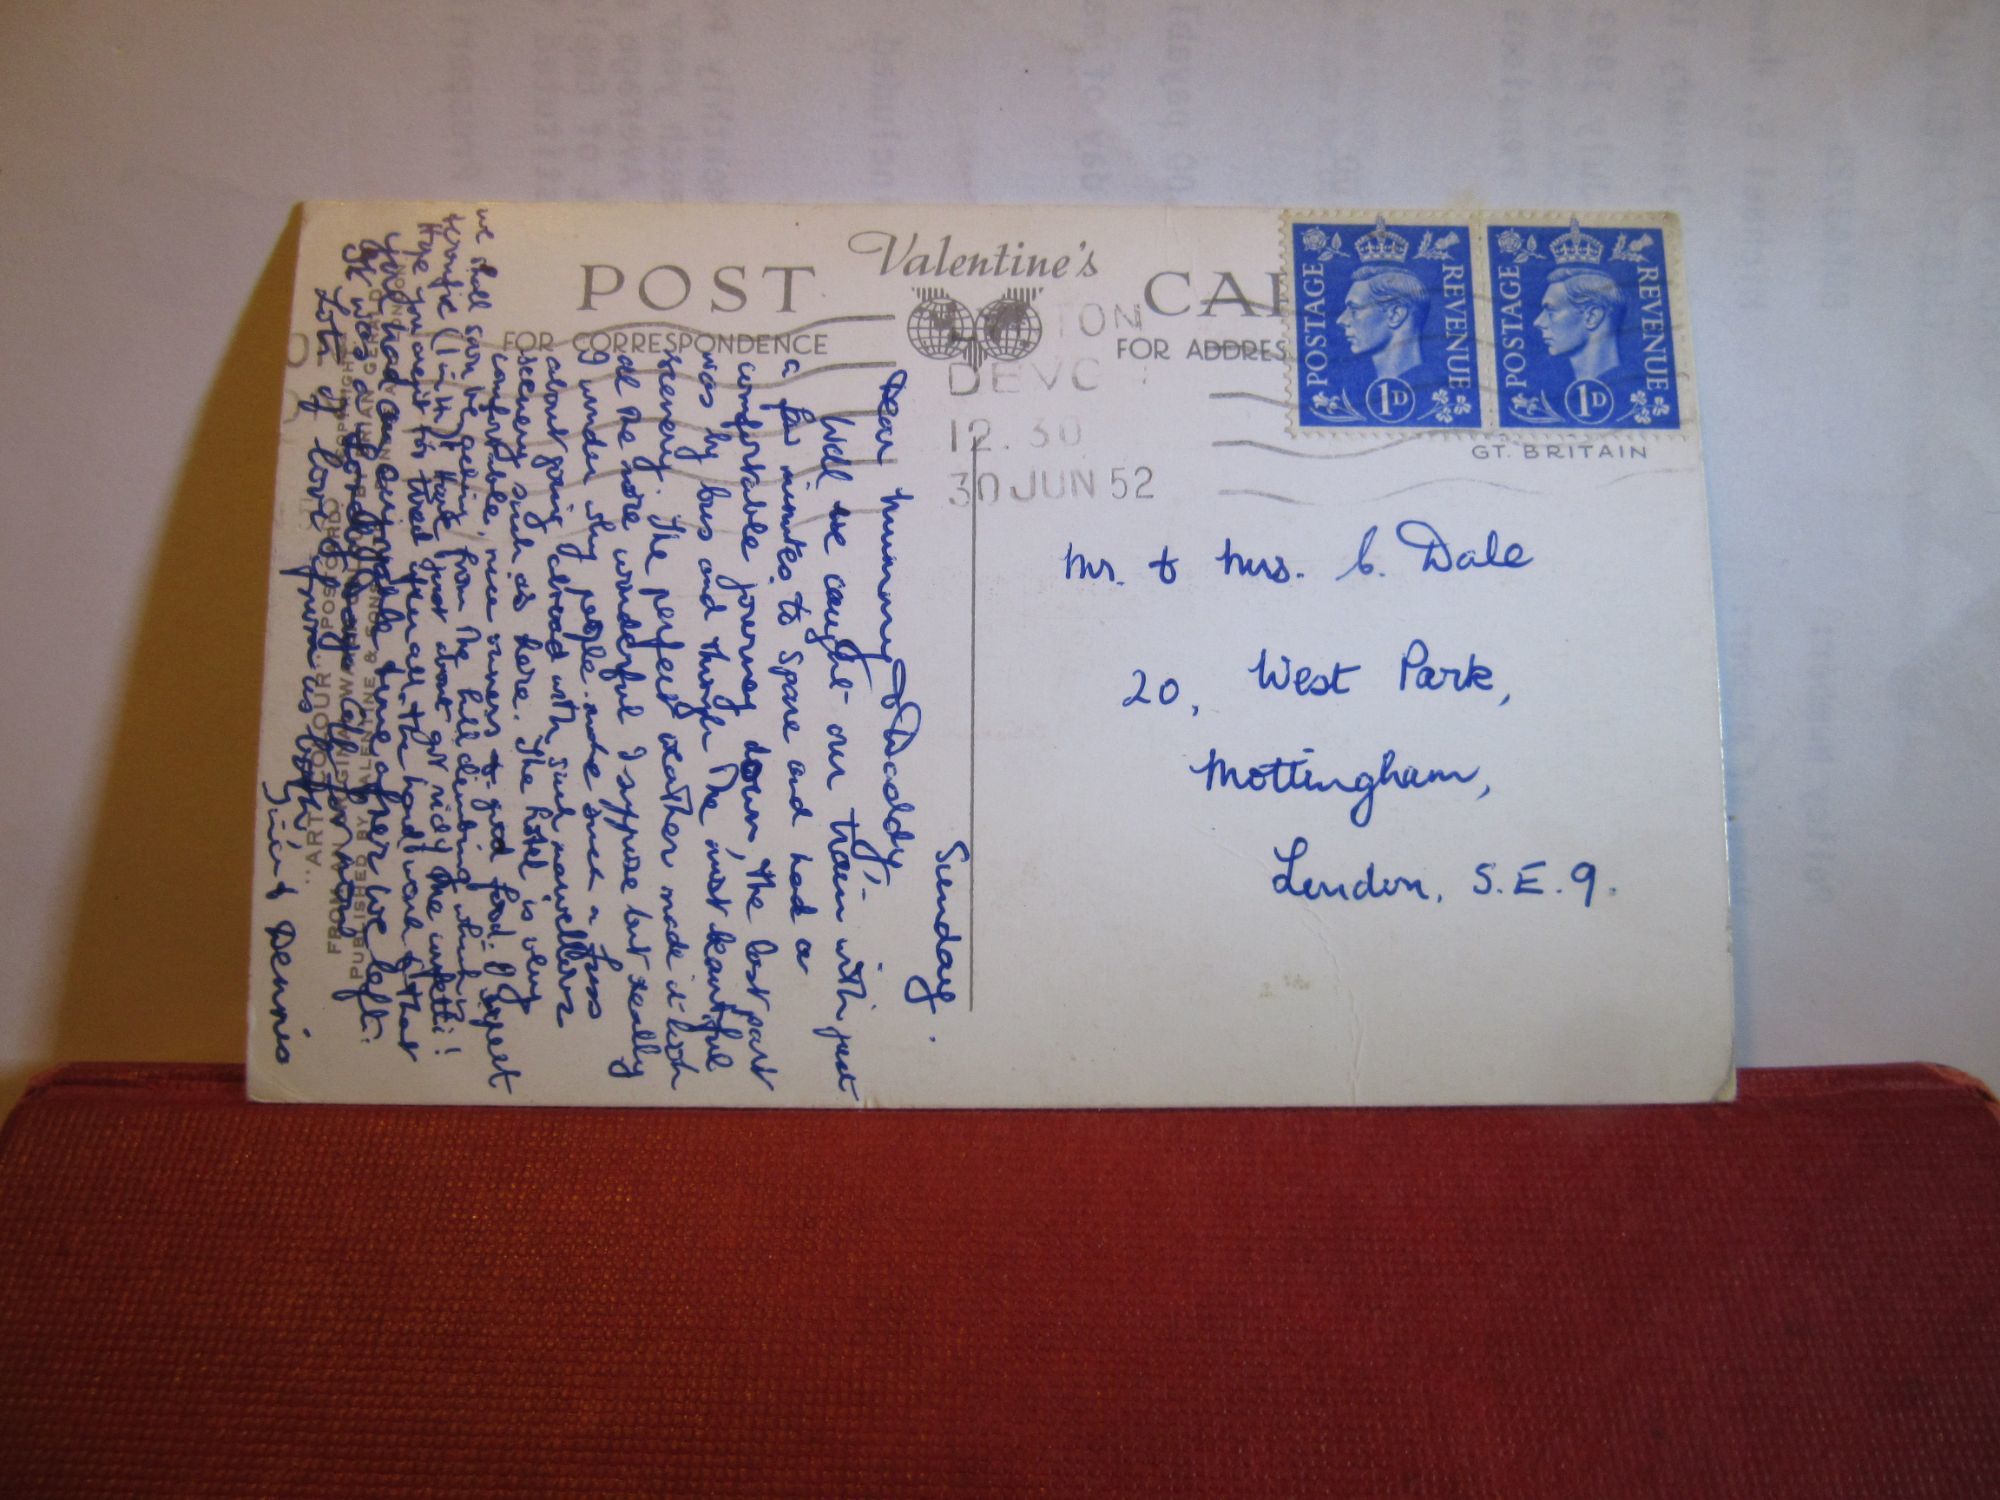 Valentine's
POST CA
FOR CORRESPONDENCE
FOR ADDRES
TON
DEVO
12.30
30 JUN 52
POSTAGE REVENUE 1D
POSTAGE REVENUE 1D
GT. BRITAIN
Mr. & Mrs. C. Dale
20, West Park,
Mottingham,
London, S.E.9.
Sunday.
Dear Mummy & Daddy,
Well we caught our train with just
a few minutes to spare and had a
comfortable journey down, the last part
was by bus and through the most beautiful
scenery. The perfect weather made it look
all the more wonderful I suppose but really
I wonder why people make such a fuss
about going abroad with such marvellous
scenery such as here. The hotel is very
comfortable, nice owners & good food. I expect
we shall soon be from the hill climbing which is
terrific (1 in 4)! Have just about got rid of the confetti!
Hope you aren't too tired after all the hard work & that
you had an enjoyable time after we left.
It was a lovely
Lots of love from us both,
& Dennis
"ART COLOUR" POSTCARD
PUBLISHED BY VALENTINE & SONS